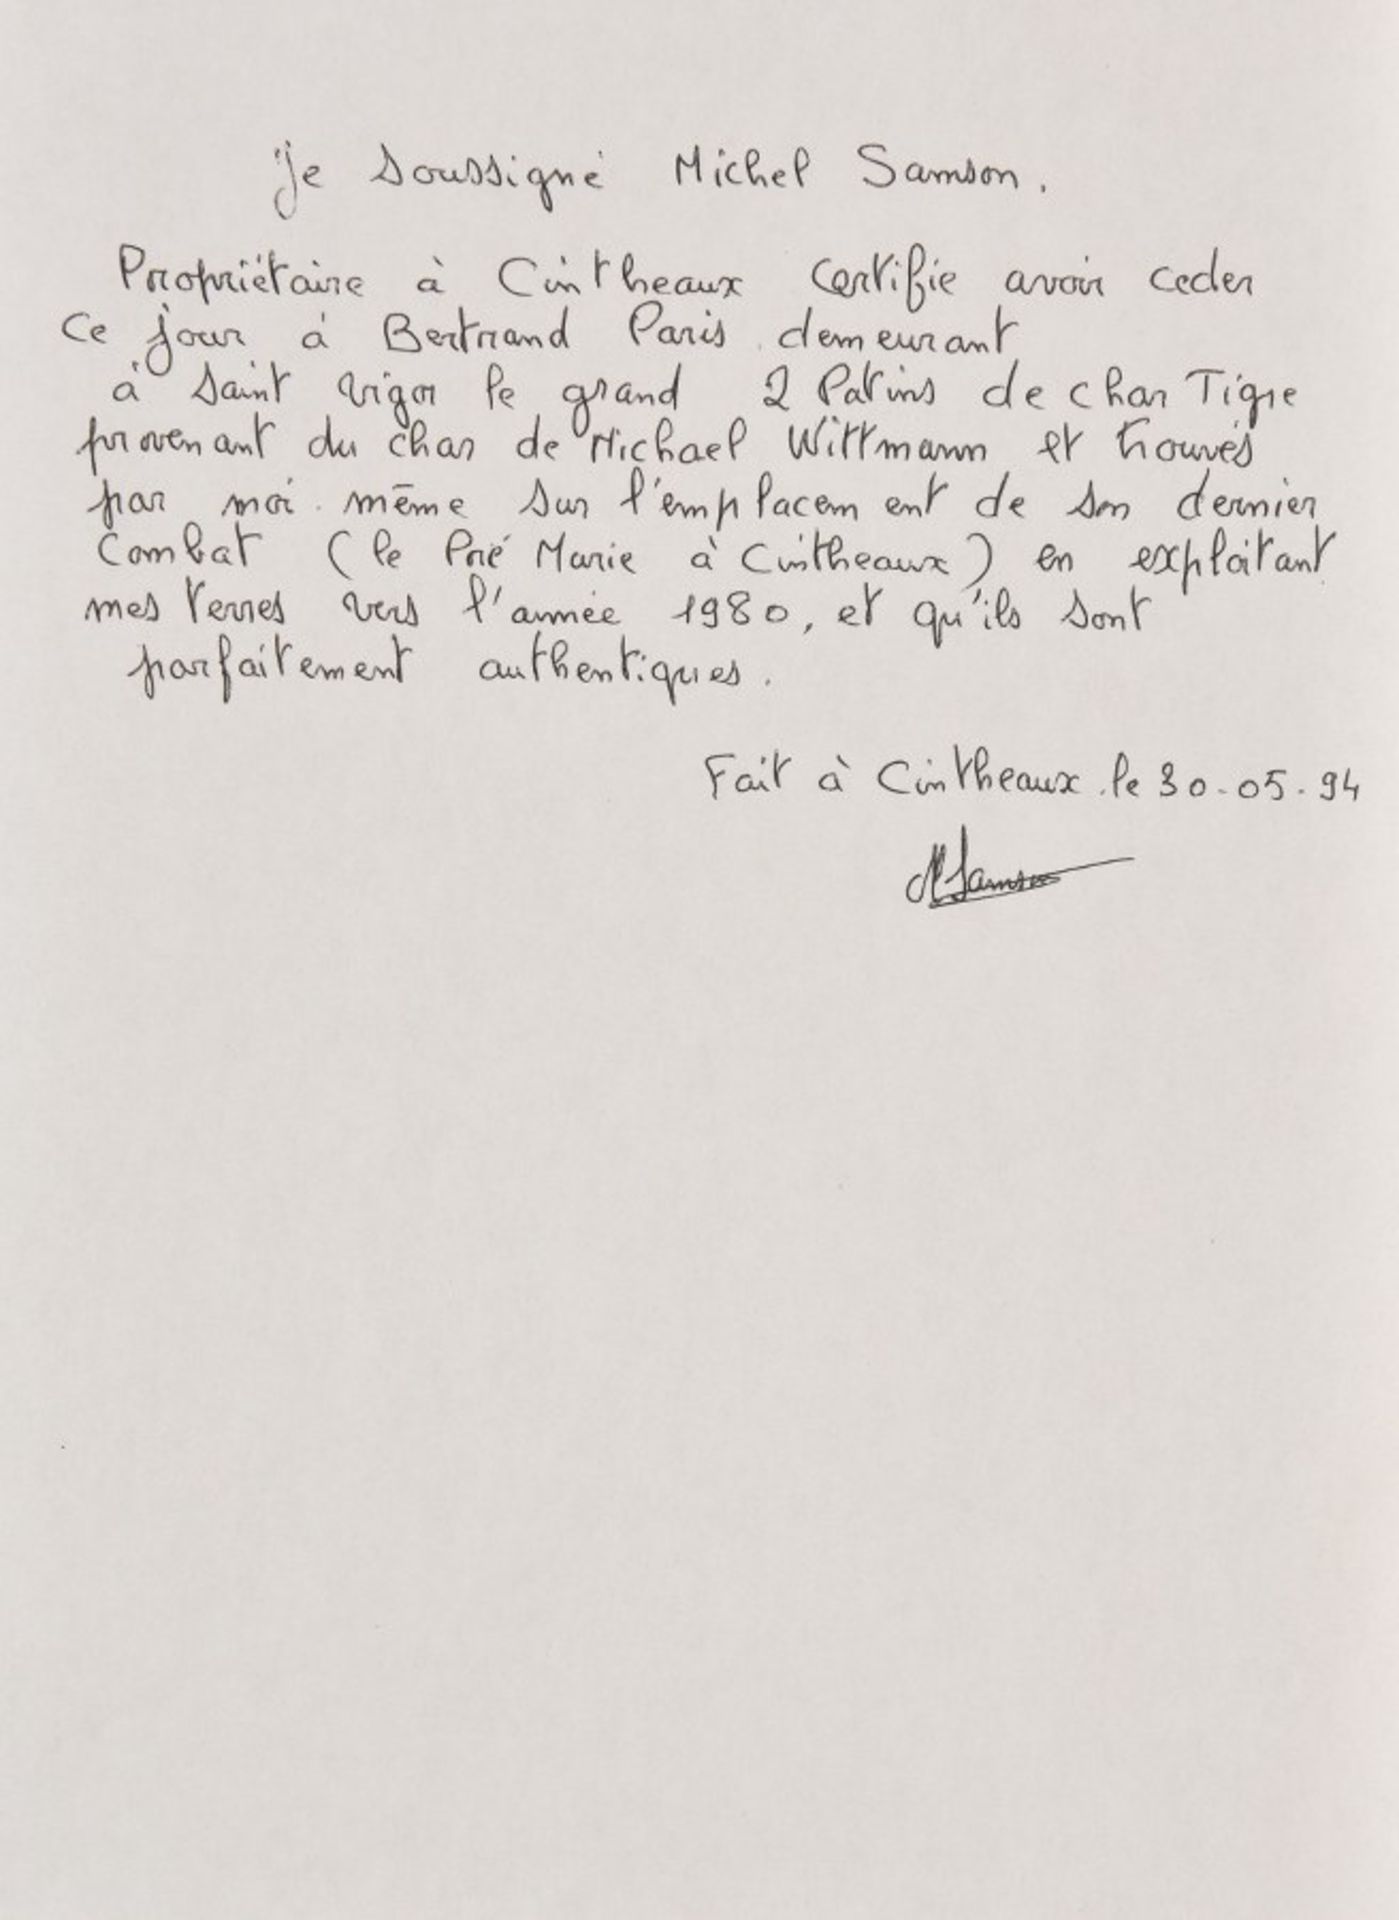 Je soussigné Michel Samson.
Propriétaire à Cintheaux certifie avoir ceder
ce jour à Bertrand Paris demeurant
à Saint Vigor le grand 2 Patins de char Tigre
provenant du char de Michael Wittmann et trouvés
par moi même sur l'emplacement de son dernier
combat (le Pré Marie à Cintheaux) en exploitant
mes terres vers l'année 1980, et qu'ils sont
parfaitement authentiques.
Fait à Cintheaux le 30-05-94
MSamson